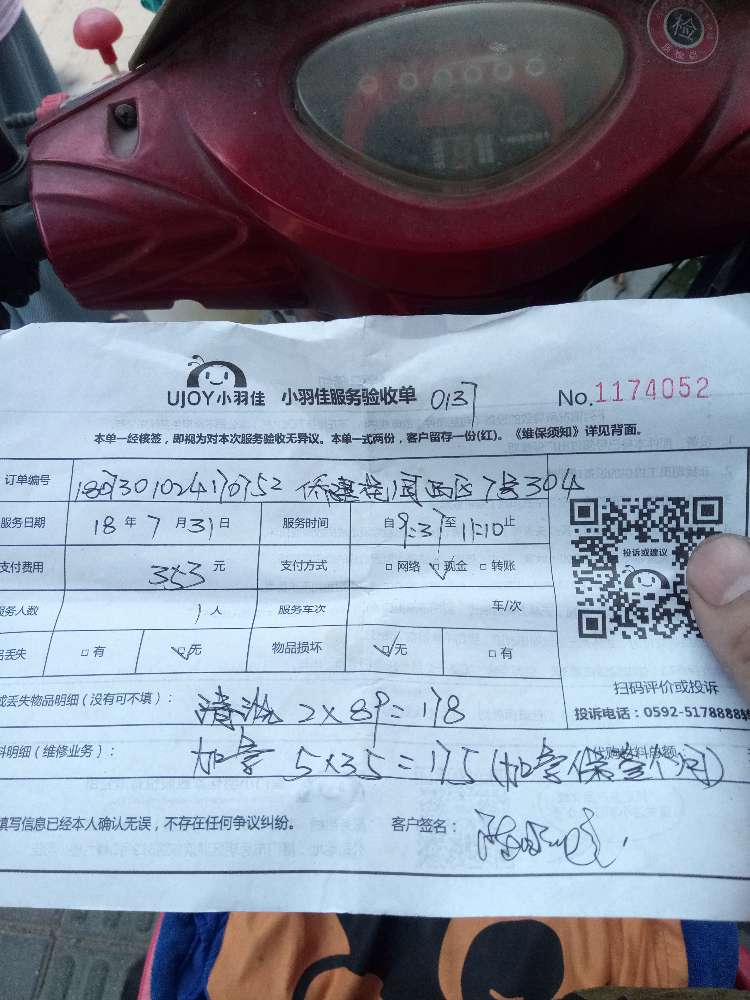 检
UJOY小羽佳 小羽佳服务验收单 013 No.1174052
本单一经核签，即视为对本次服务验收无异议。本单一式两份，客户留存一份(红)。《维保须知》详见背面。
订单编号 1807301024170752 7号304
服务日期 18年7月31日 服务时间 自9:37至11:10止
支付费用 353元 支付方式 □网络 ☑现金 □转账
服务人数 1人 服务车次 车/次
丢失 □有 ☑无 物品损坏 ☑无 □有
投诉或建议
扫码评价或投诉
投诉电话：0592-5178888转
或丢失物品明细（没有可不填）： 清洗 2×89=178
料明细（维修业务）： 5×35=175 代购材料总额
填写信息已经本人确认无误，不存在任何争议纠纷。 客户签名：